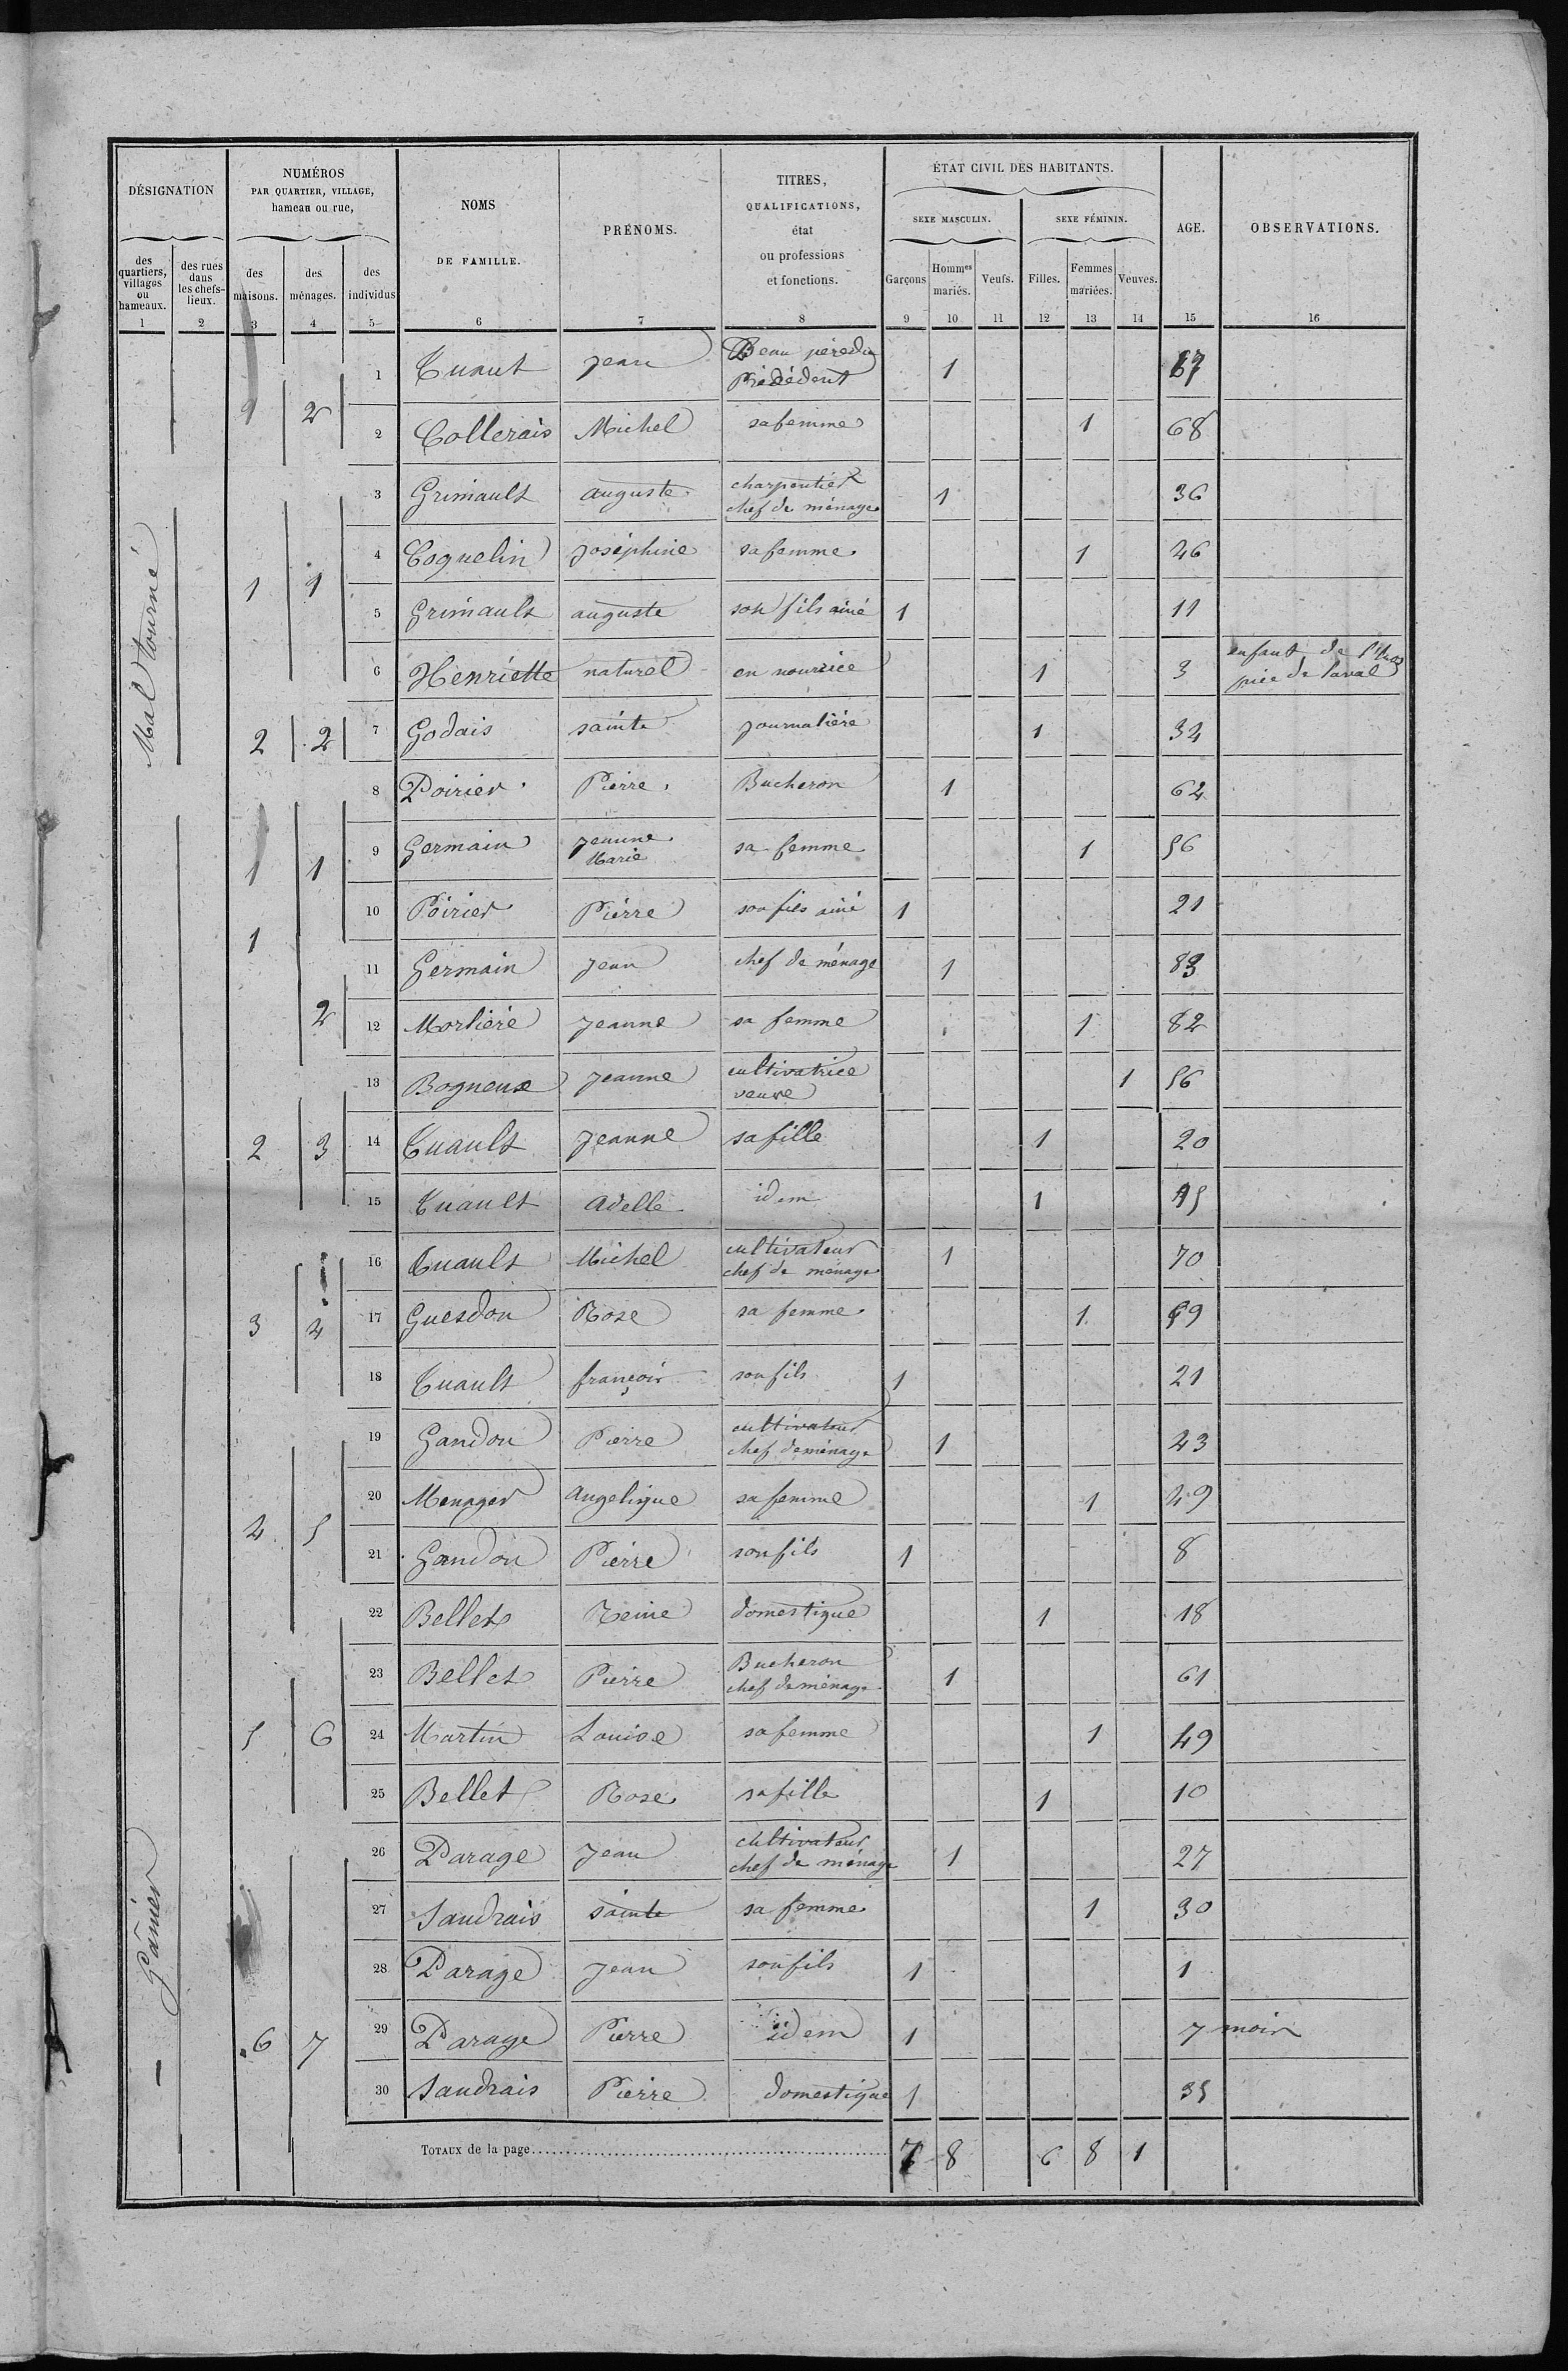 DÉSIGNATION
des quartiers, villages ou hameaux.
des rues dans les chefs-lieux.
NUMÉROS PAR QUARTIER, VILLAGE, hameau ou rue,
des maisons.
des ménages.
des individus
NOMS DE FAMILLE.
PRÉNOMS.
TITRES, QUALIFICATIONS, état ou professions et fonctions.
ÉTAT CIVIL DES HABITANTS.
SEXE MASCULIN.
SEXE FÉMININ.
Garçons
Hommes mariés.
Veufs.
Filles.
Femmes mariées.
Veuves.
AGE.
OBSERVATIONS.
1 2 3 4 5 6 7 8 9 10 11 12 13 14 15 16
1 Tuaut Jean Beau père du Précédent 1 67
1 2
2 Collerais Michel sa femme 1 68
Mal tourné
3 Grimault auguste charpentier chef de ménage 1 36
4 Coquelin Joséphine sa femme 1 46
1 1
5 Grimault auguste son fils ainé 1 11
6 Henriette naturel en nourrice 1 3 enfant de l'hospice de laval
2 2
7 Godais sainte journalière 1 34
8 Poirier Pierre Bucheron 1 62
1 1
9 Germain Jeanne Marie sa femme 1 56
10 Poirier Pierre son fils ainé 1 21
1
11 Germain Jean chef de ménage 1 83
2
12 Morlière Jeanne sa femme 1 82
13 Bogneux Jeanne cultivatrice veuve 1 56
2 3
14 Tuault Jeanne sa fille 1 20
15 Tuault Adelle idem 1 15
16 Tuault Michel cultivateur chef de ménage 1 70
3 4
17 Guesdon Rose sa femme 1 59
18 Tuault françois son fils 1 21
19 Gandon Pierre cultivateur chef de ménage 1 43
20 Menager Angelique sa femme 1 49
4 5
21 Gandon Pierre son fils 1 8
22 Bellet Reine domestique 1 18
23 Bellet Pierre Bucheron chef de ménage 1 61
5 6
24 Martin Louise sa femme 1 49
25 Bellet Rose sa fille 1 10
26 Parage Jean cultivateur chef de ménage 1 27
27 Saudrais sainte sa femme 1 30
28 Parage Jean son fils 1 1
6 7
29 Parage Pierre idem 1 7 mois
30 Saudrais Pierre domestique 1 35
TOTAUX de la page 7 8 6 8 1